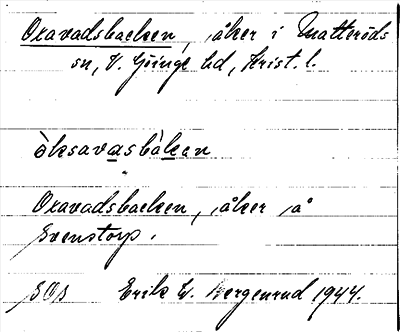 Oxavadsbacken, åker i Matteröds
sn, V. Göinge hd, Krist. l.
òksavasbàken
Oxavadsbacken, åker på
Svenstorp.
Erik W. Bergenrud 1944.